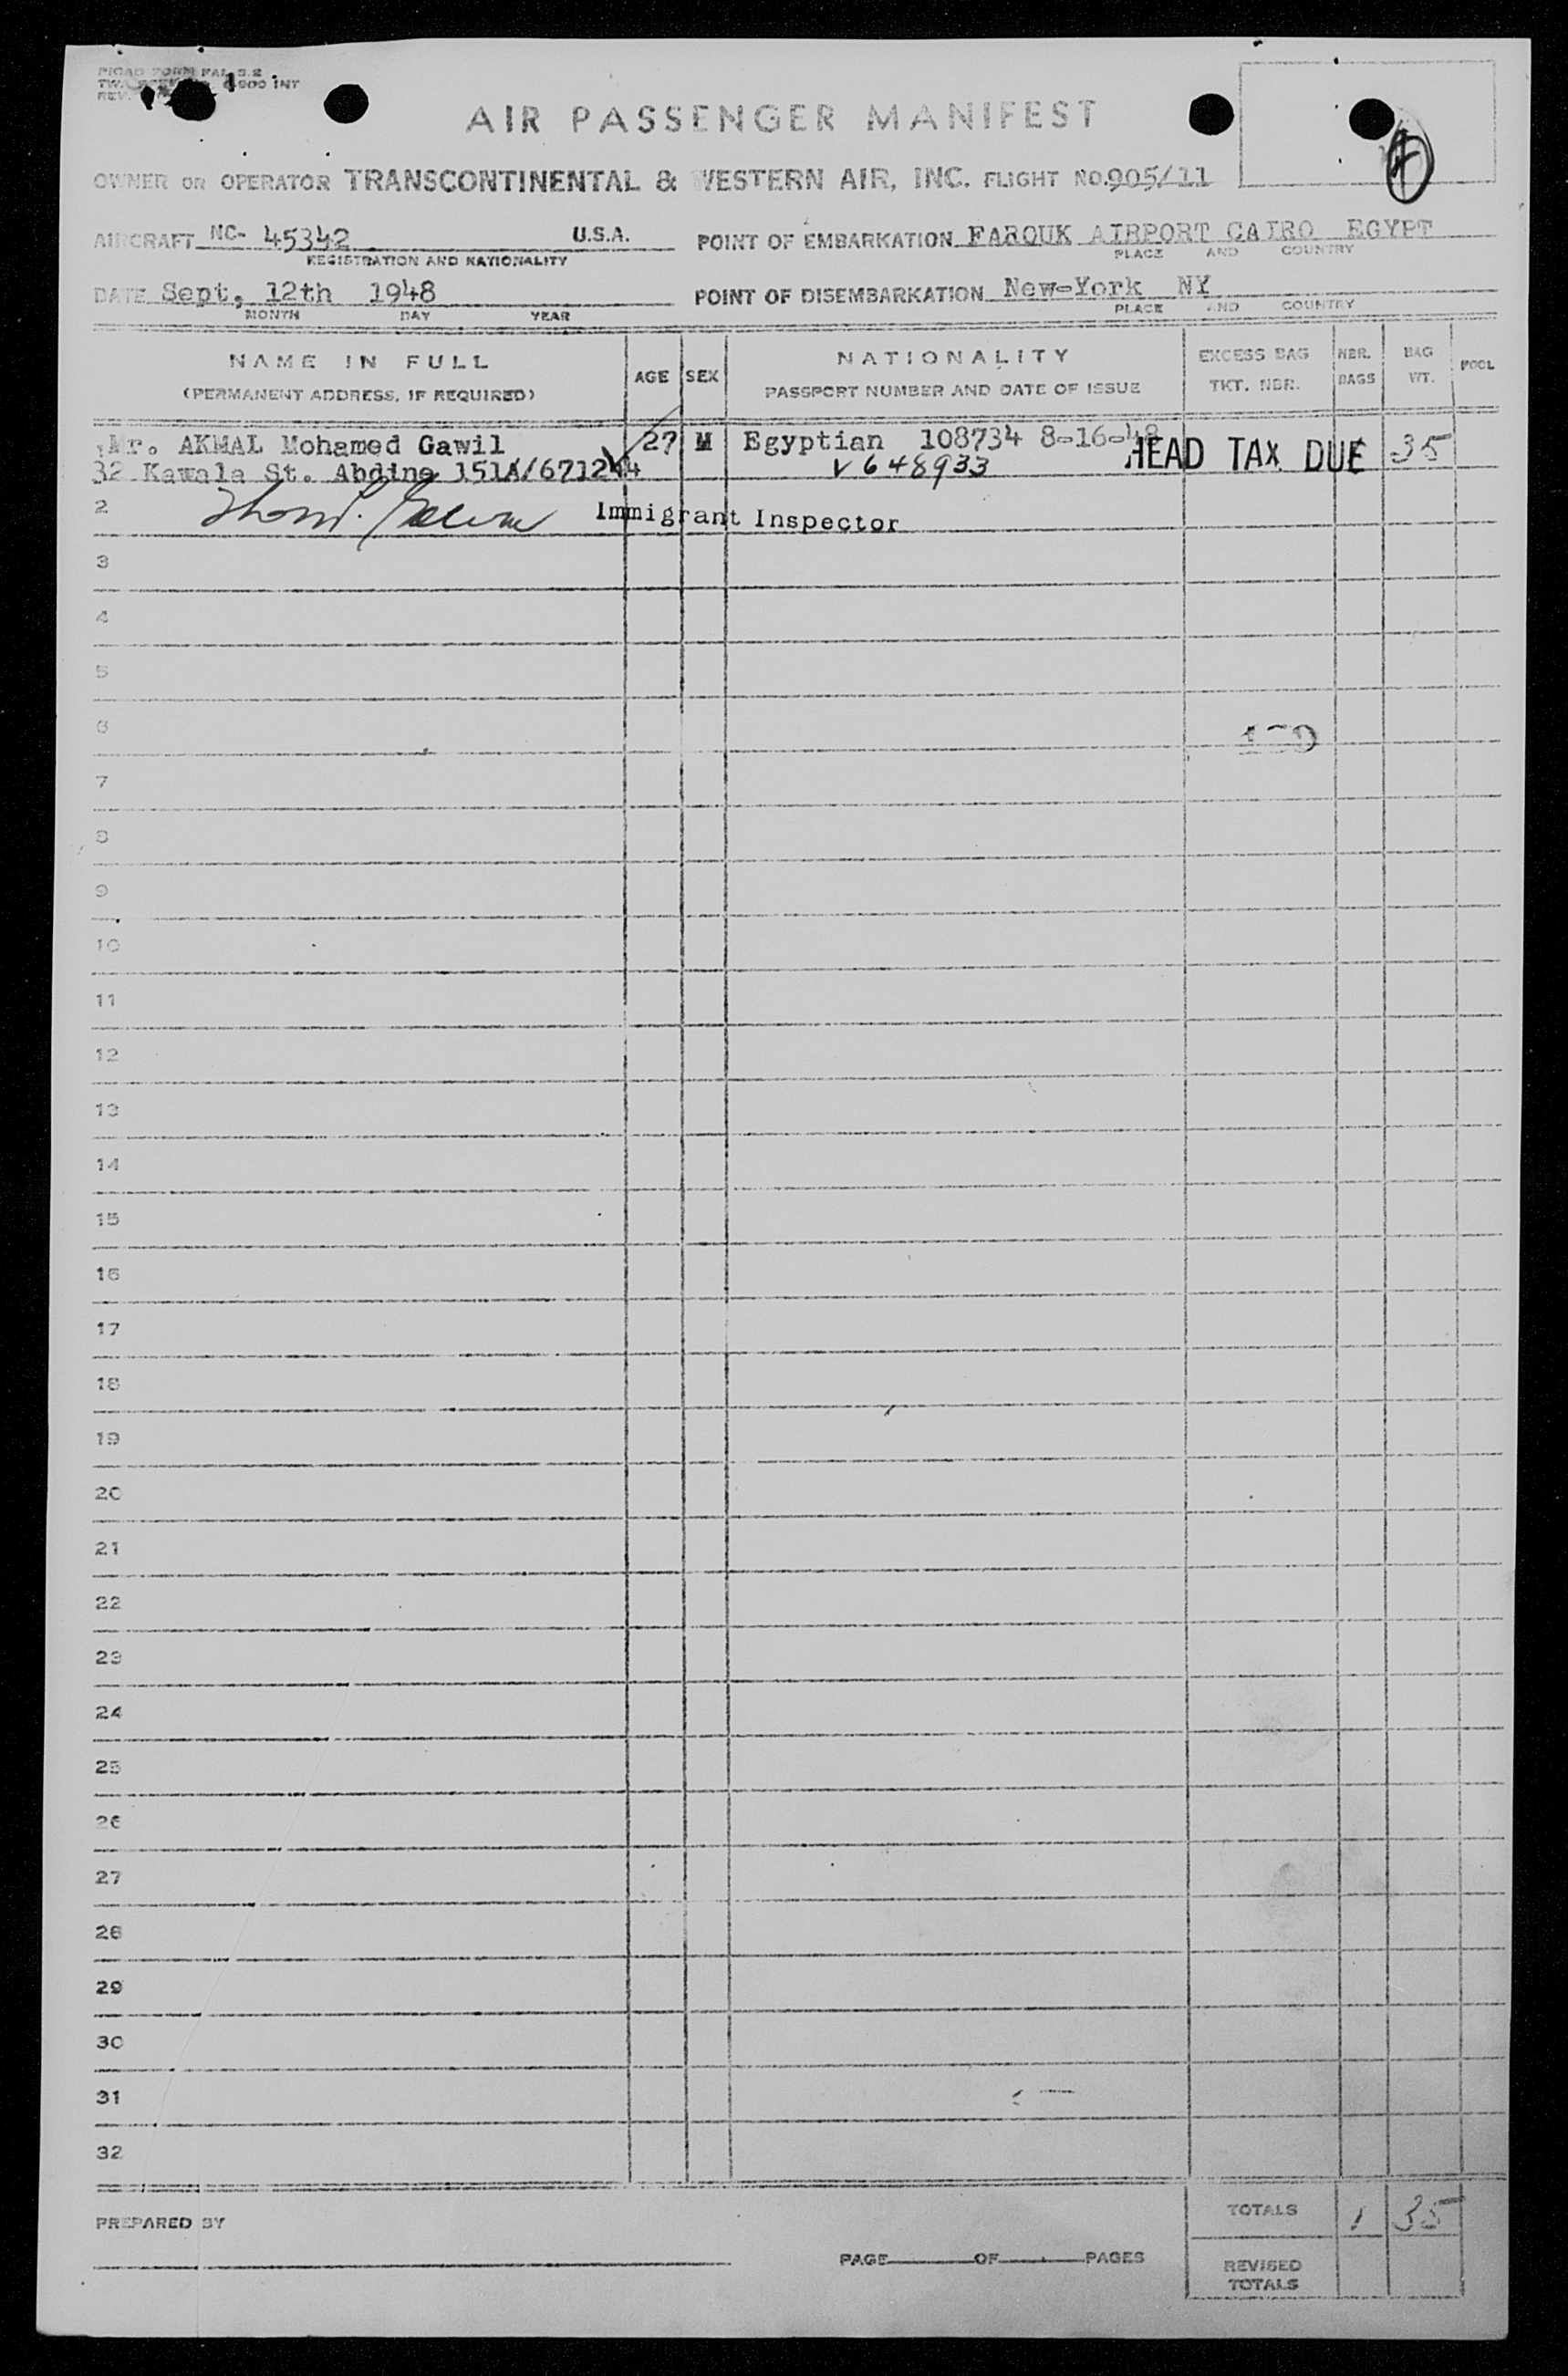 PICAO FORM FAL 3.2
REV.
AIR PASSENGER MANIFEST
OWNER OR OPERATOR TRANSCONTINENTAL & WESTERN AIR, INC. FLIGHT NO. 905/11
AIRCRAFT NC- 45342 U.S.A. POINT OF EMBARKATION FAROUK AIRPORT CAIRO EGYPT
REGISTRATION AND NATIONALITY PLACE AND COUNTRY
DATE Sept, 12th 1948 POINT OF DISEMBARKATION New-York NY
MONTH DAY YEAR PLACE AND COUNTRY
NAME IN FULL AGE SEX NATIONALITY EXCESS BAG NBR. BAG POOL
(PERMANENT ADDRESS, IF REQUIRED) PASSPORT NUMBER AND DATE OF ISSUE TKT. NBR. BAGS WT.
Mr. AKMAL Mohamed Gawil 27 M Egyptian 108734 8-16-48 HEAD TAX DUE 35
32 Kawala St. Abdine 151A/671244 V648933
2 Immigrant Inspector
3
4
5
6
7
8
9
10
11
12
13
14
15
16
17
18
19
20
21
22
23
24
25
26
27
28
29
30
31
32
TOTALS 1 35
PREPARED BY
PAGE OF PAGES
REVISED
TOTALS